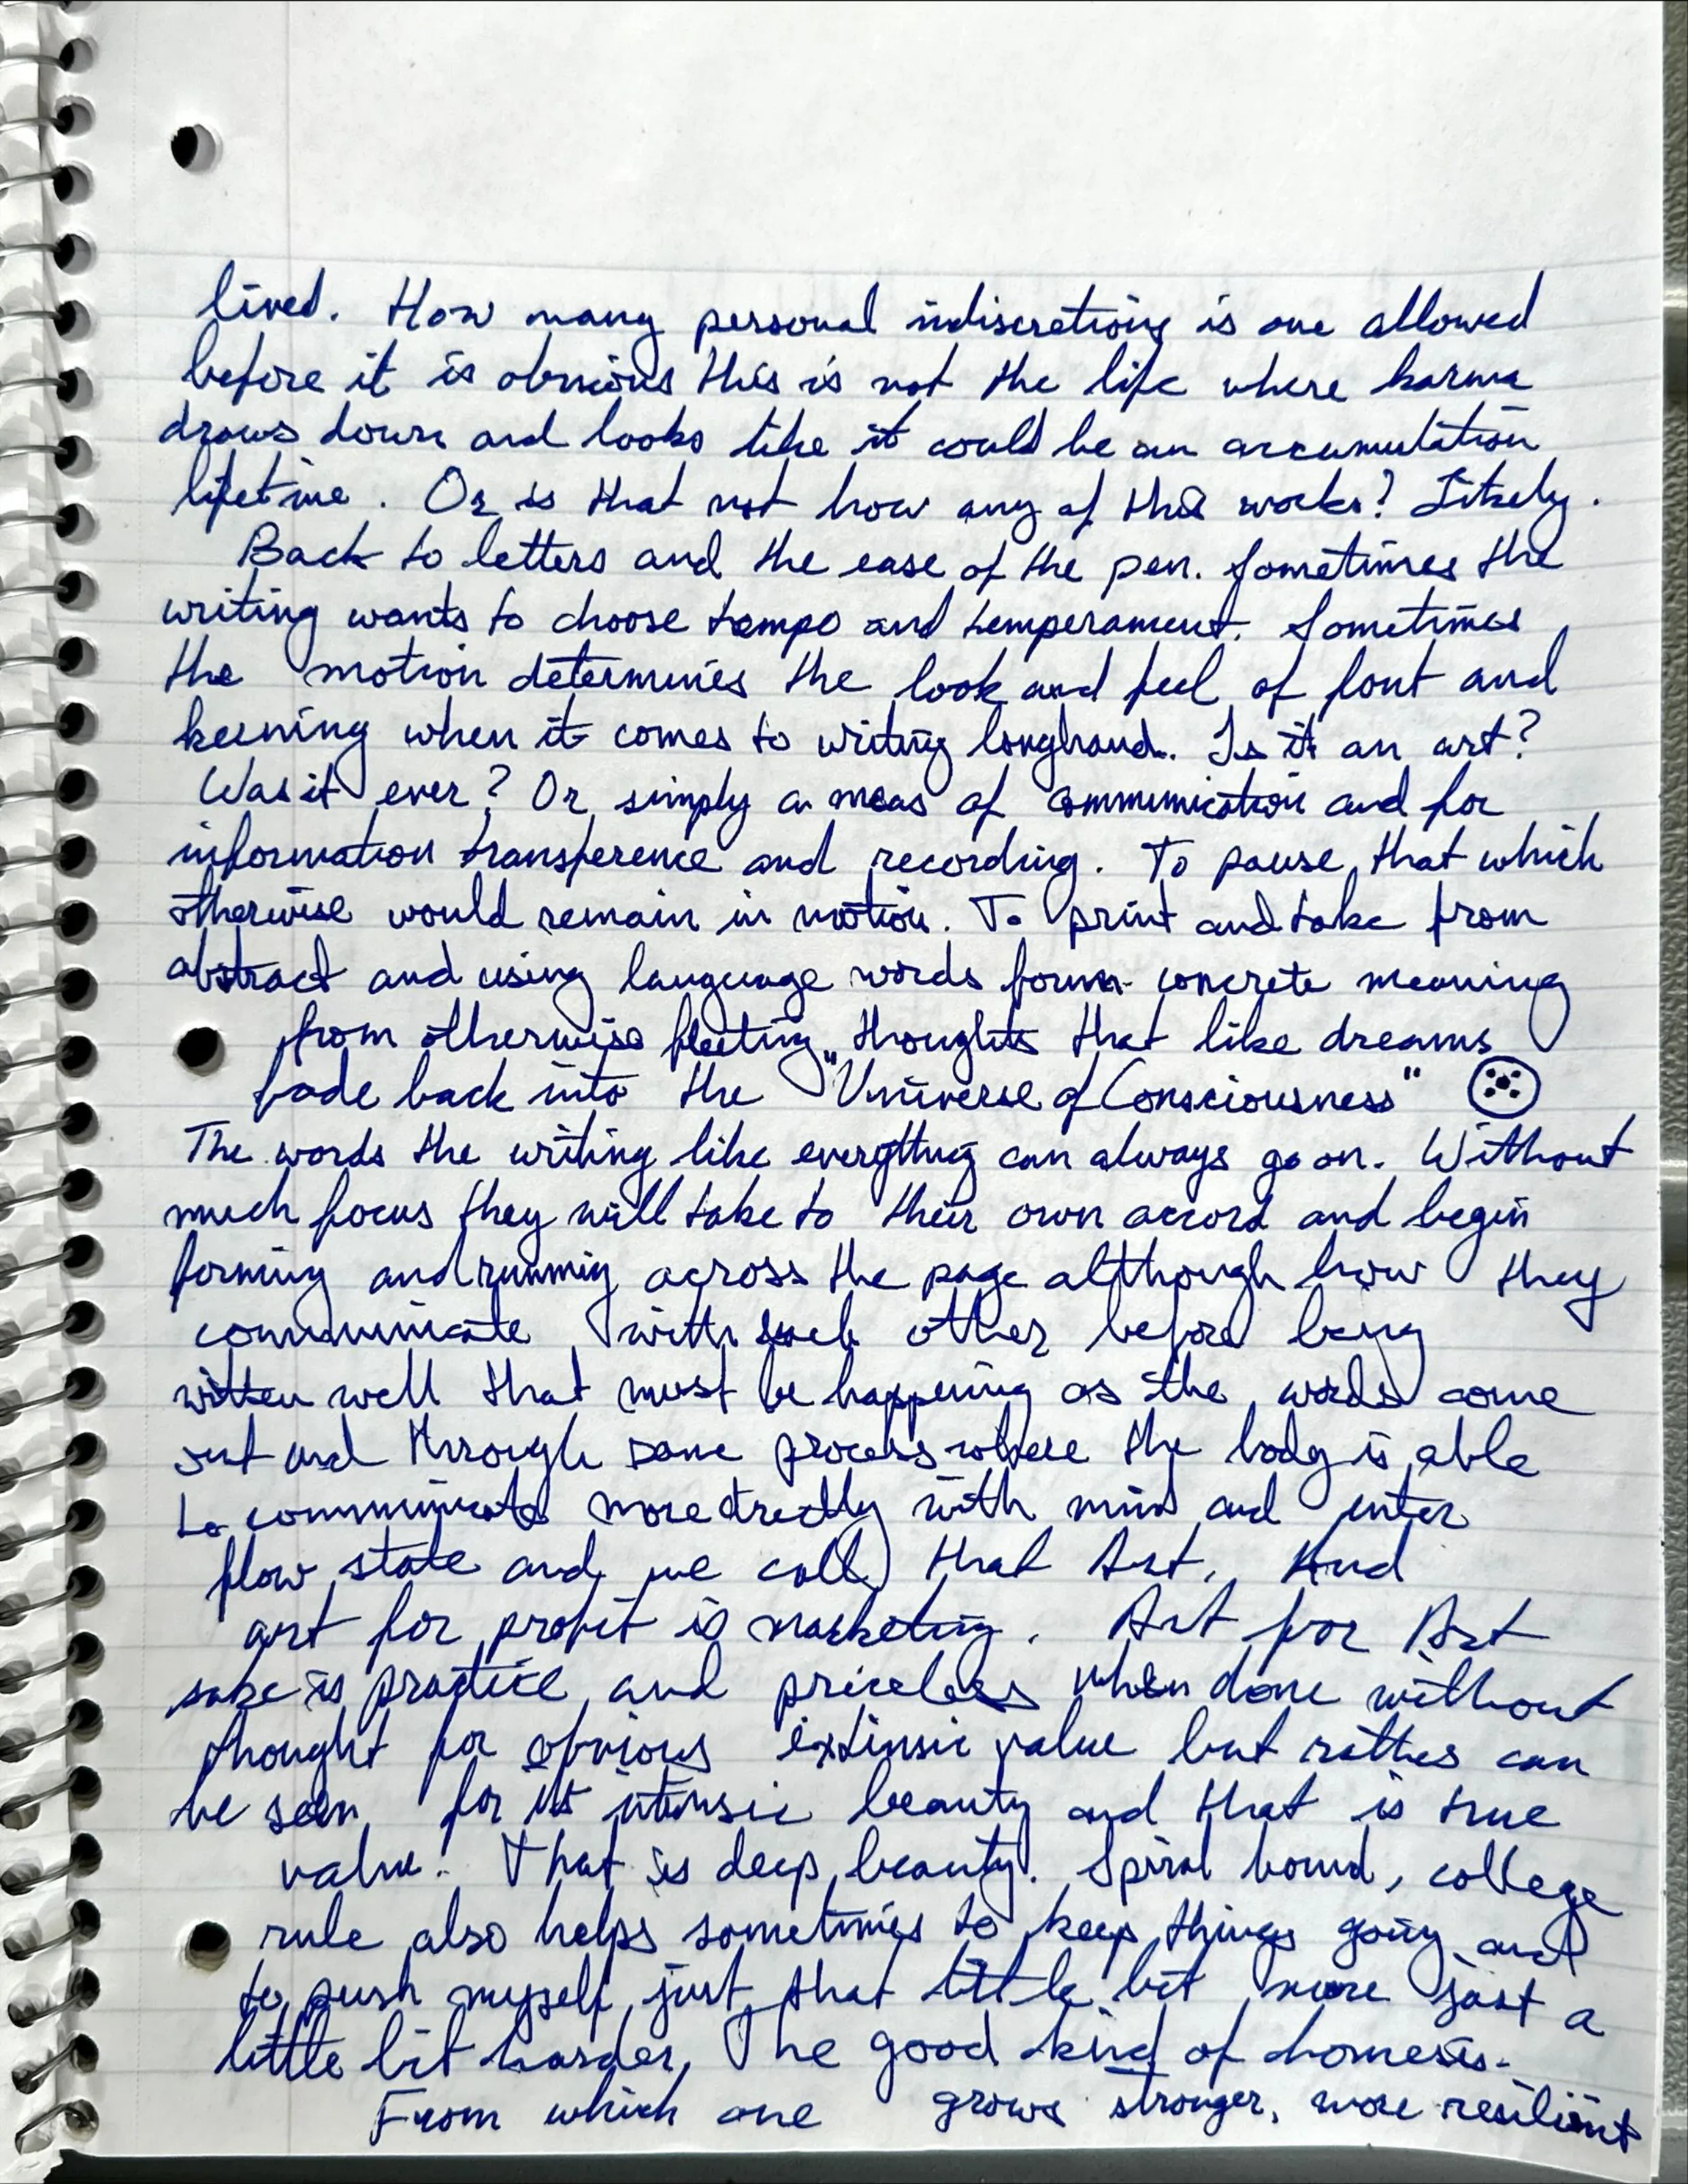 lived. How many personal indiscretions is one allowed
before it is obvious this is not the life where karma
draws down and looks like it could be an accumulation
lifetime. Or is that not how any of this works? Likely.
Back to letters and the ease of the pen. Sometimes the
writing wants to choose tempo and temperament. Sometimes
the motion determines the look and feel of font and
keening when it comes to writing longhand. Is it an art?
Was it ever? Or simply a meas of communication and for
information transference and recording. To pause that which
otherwise would remain in motion. To print and take from
abstract and using language words form concrete meaning
from otherwise fleeting thoughts that like dreams
fade back into the "Universe of Consciousness"
The words the writing like everything can always go on. Without
much focus they will take to their own accord and begin
forming and running across the page although how they
communicate with each other before being
written well that must be happening as the words come
out and through some process where the body is able
to communicate more directly with mind and enter
flow state and we call that Art. And
art for profit is marketing. Art for Art
sake is practice and priceless when done without
thought for obvious extinsic value but rather can
be seen for its intinsic beauty and that is true
value. That is deep beauty. Spiral bound, college
rule also helps sometimes to keep things going and
to push myself just that little bit more just a
little bit harder. The good kind of homesis.
From which one grows stronger, more resilient